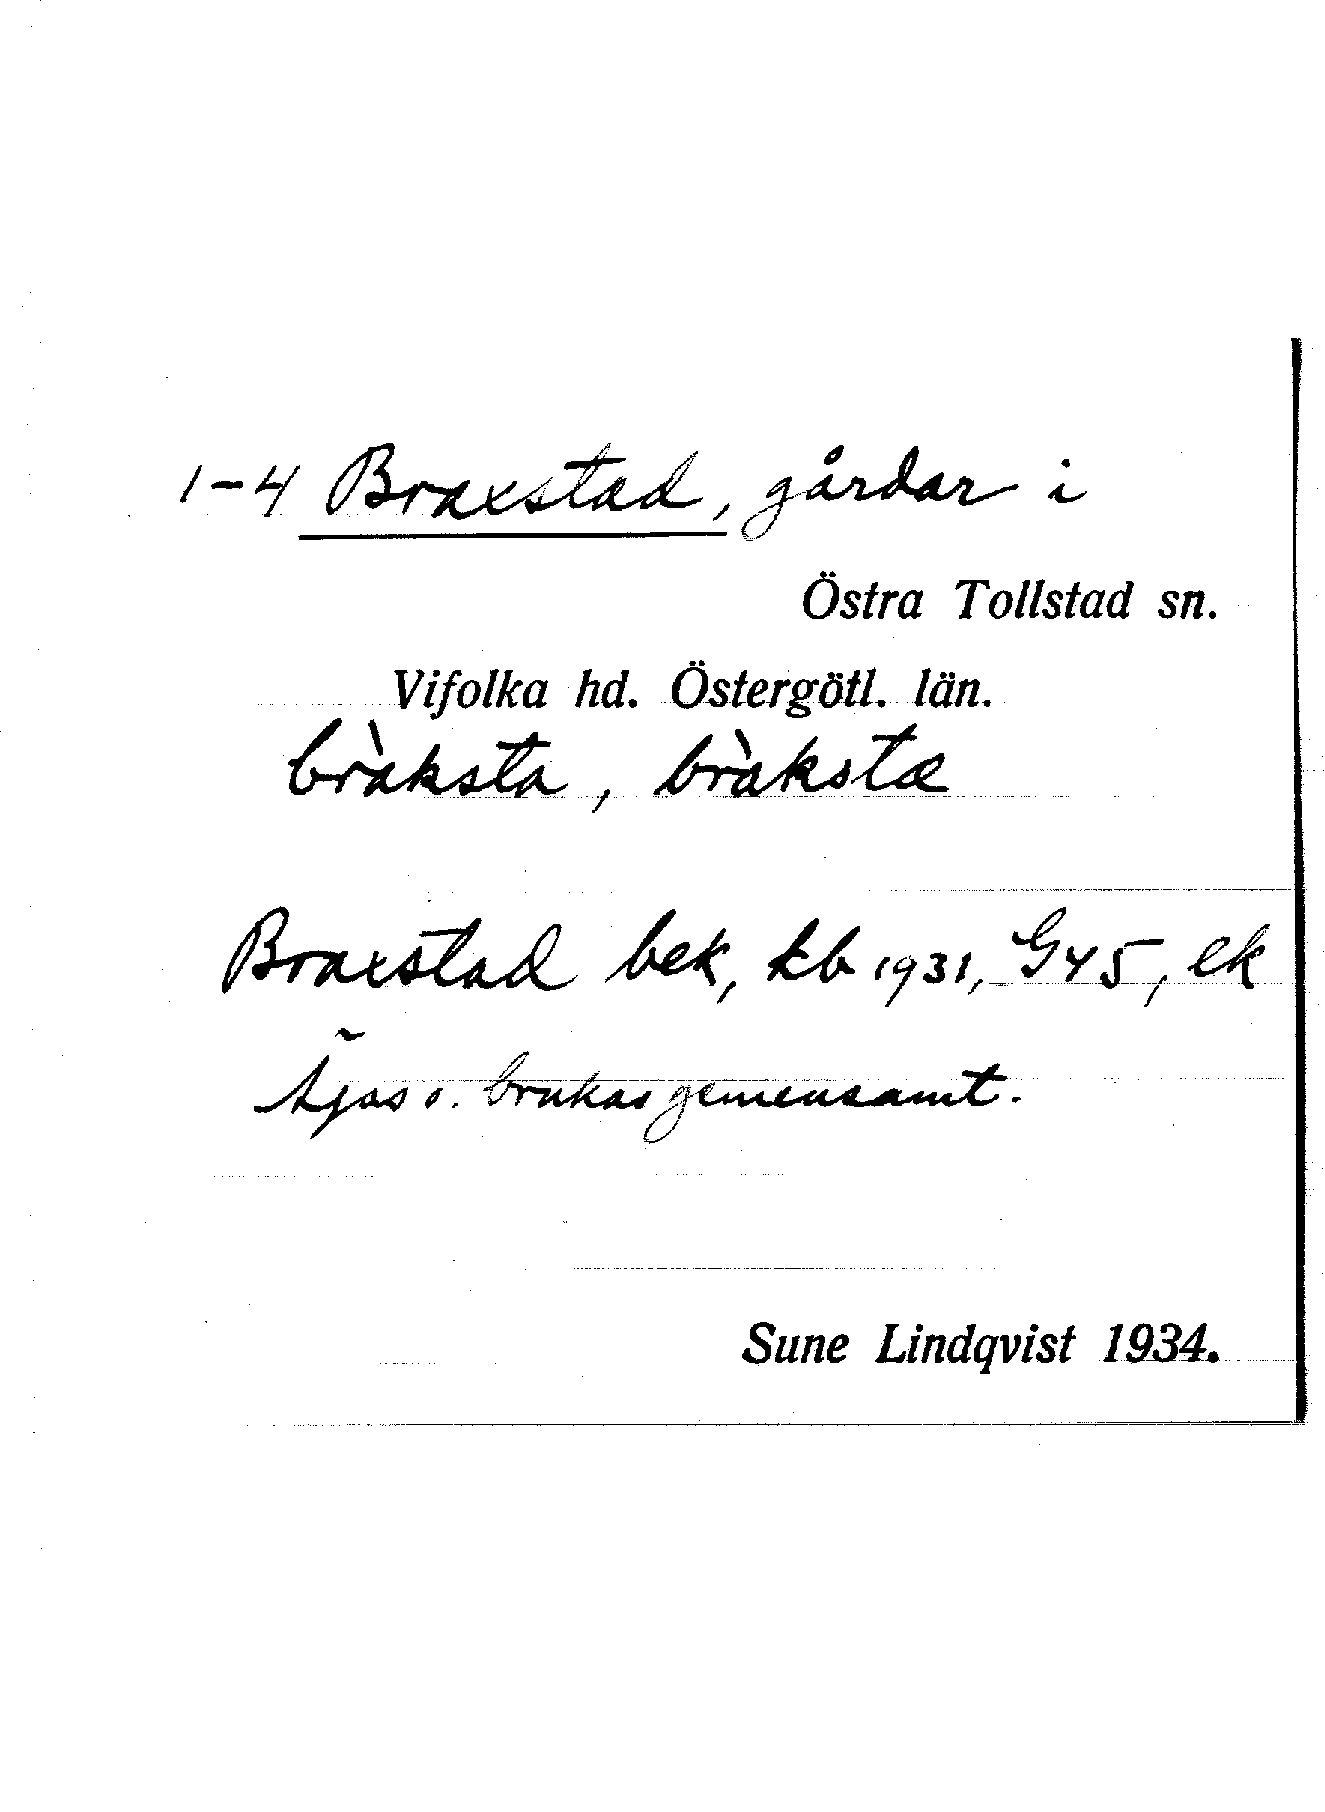 1-4 Braxstad, gårdar i
Östra Tollstad sn.
Vifolka hd. Östergötl. län.
bràksta, bràkstæ
Braxstad bek, kb 1931, G45, ek
Ägas o. brukas gemensamt.
Sune Lindqvist 1934.